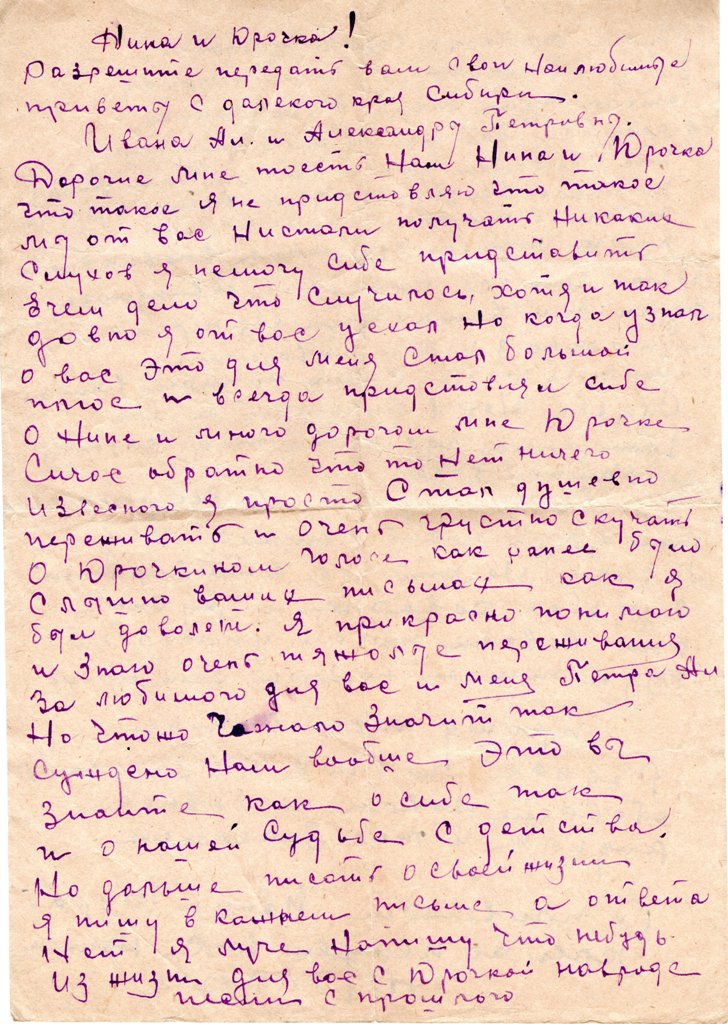 Нина и Юрочка!
Разрешите передать вам свои наилюбимые
приветы с далекого края Сибири.
Ивана Ал. и Александры Петровны.
Дорогие мне тоесть нам Нина и Юрочка
что такое я не придставляю что такое
мы от вас нистали получать никаких
слухов я немогу сибе придставить
вчем дело что случилось, хотя и так
довно я от вас уехал но когда узнал
о вас это для меня стал большой
плюс и всегда придставлял сибе
о Нине и много дорогом мне Юрочке
Сичас обратно что то нет ничего
извесного я просто стал душевно
переживать и очень грустно скучать
о Юрочкином голосе как ранее было
слышно ваших письмах как я
был доволен. Я прикрасно понимаю
и знаю очень тяжолые переживания
за любимого для вас и меня Петра Ал
Но чтожо значит так
суждено нам вообще это вы
знаите как о сибе так
и о нашей судьбе с детства.
Но дальше писать о своей жизни
я пишу в кажнем письме а ответа
нет я луче напишу что небудь
из жизни для вас с Юрочкой навроде
песни с прошлого